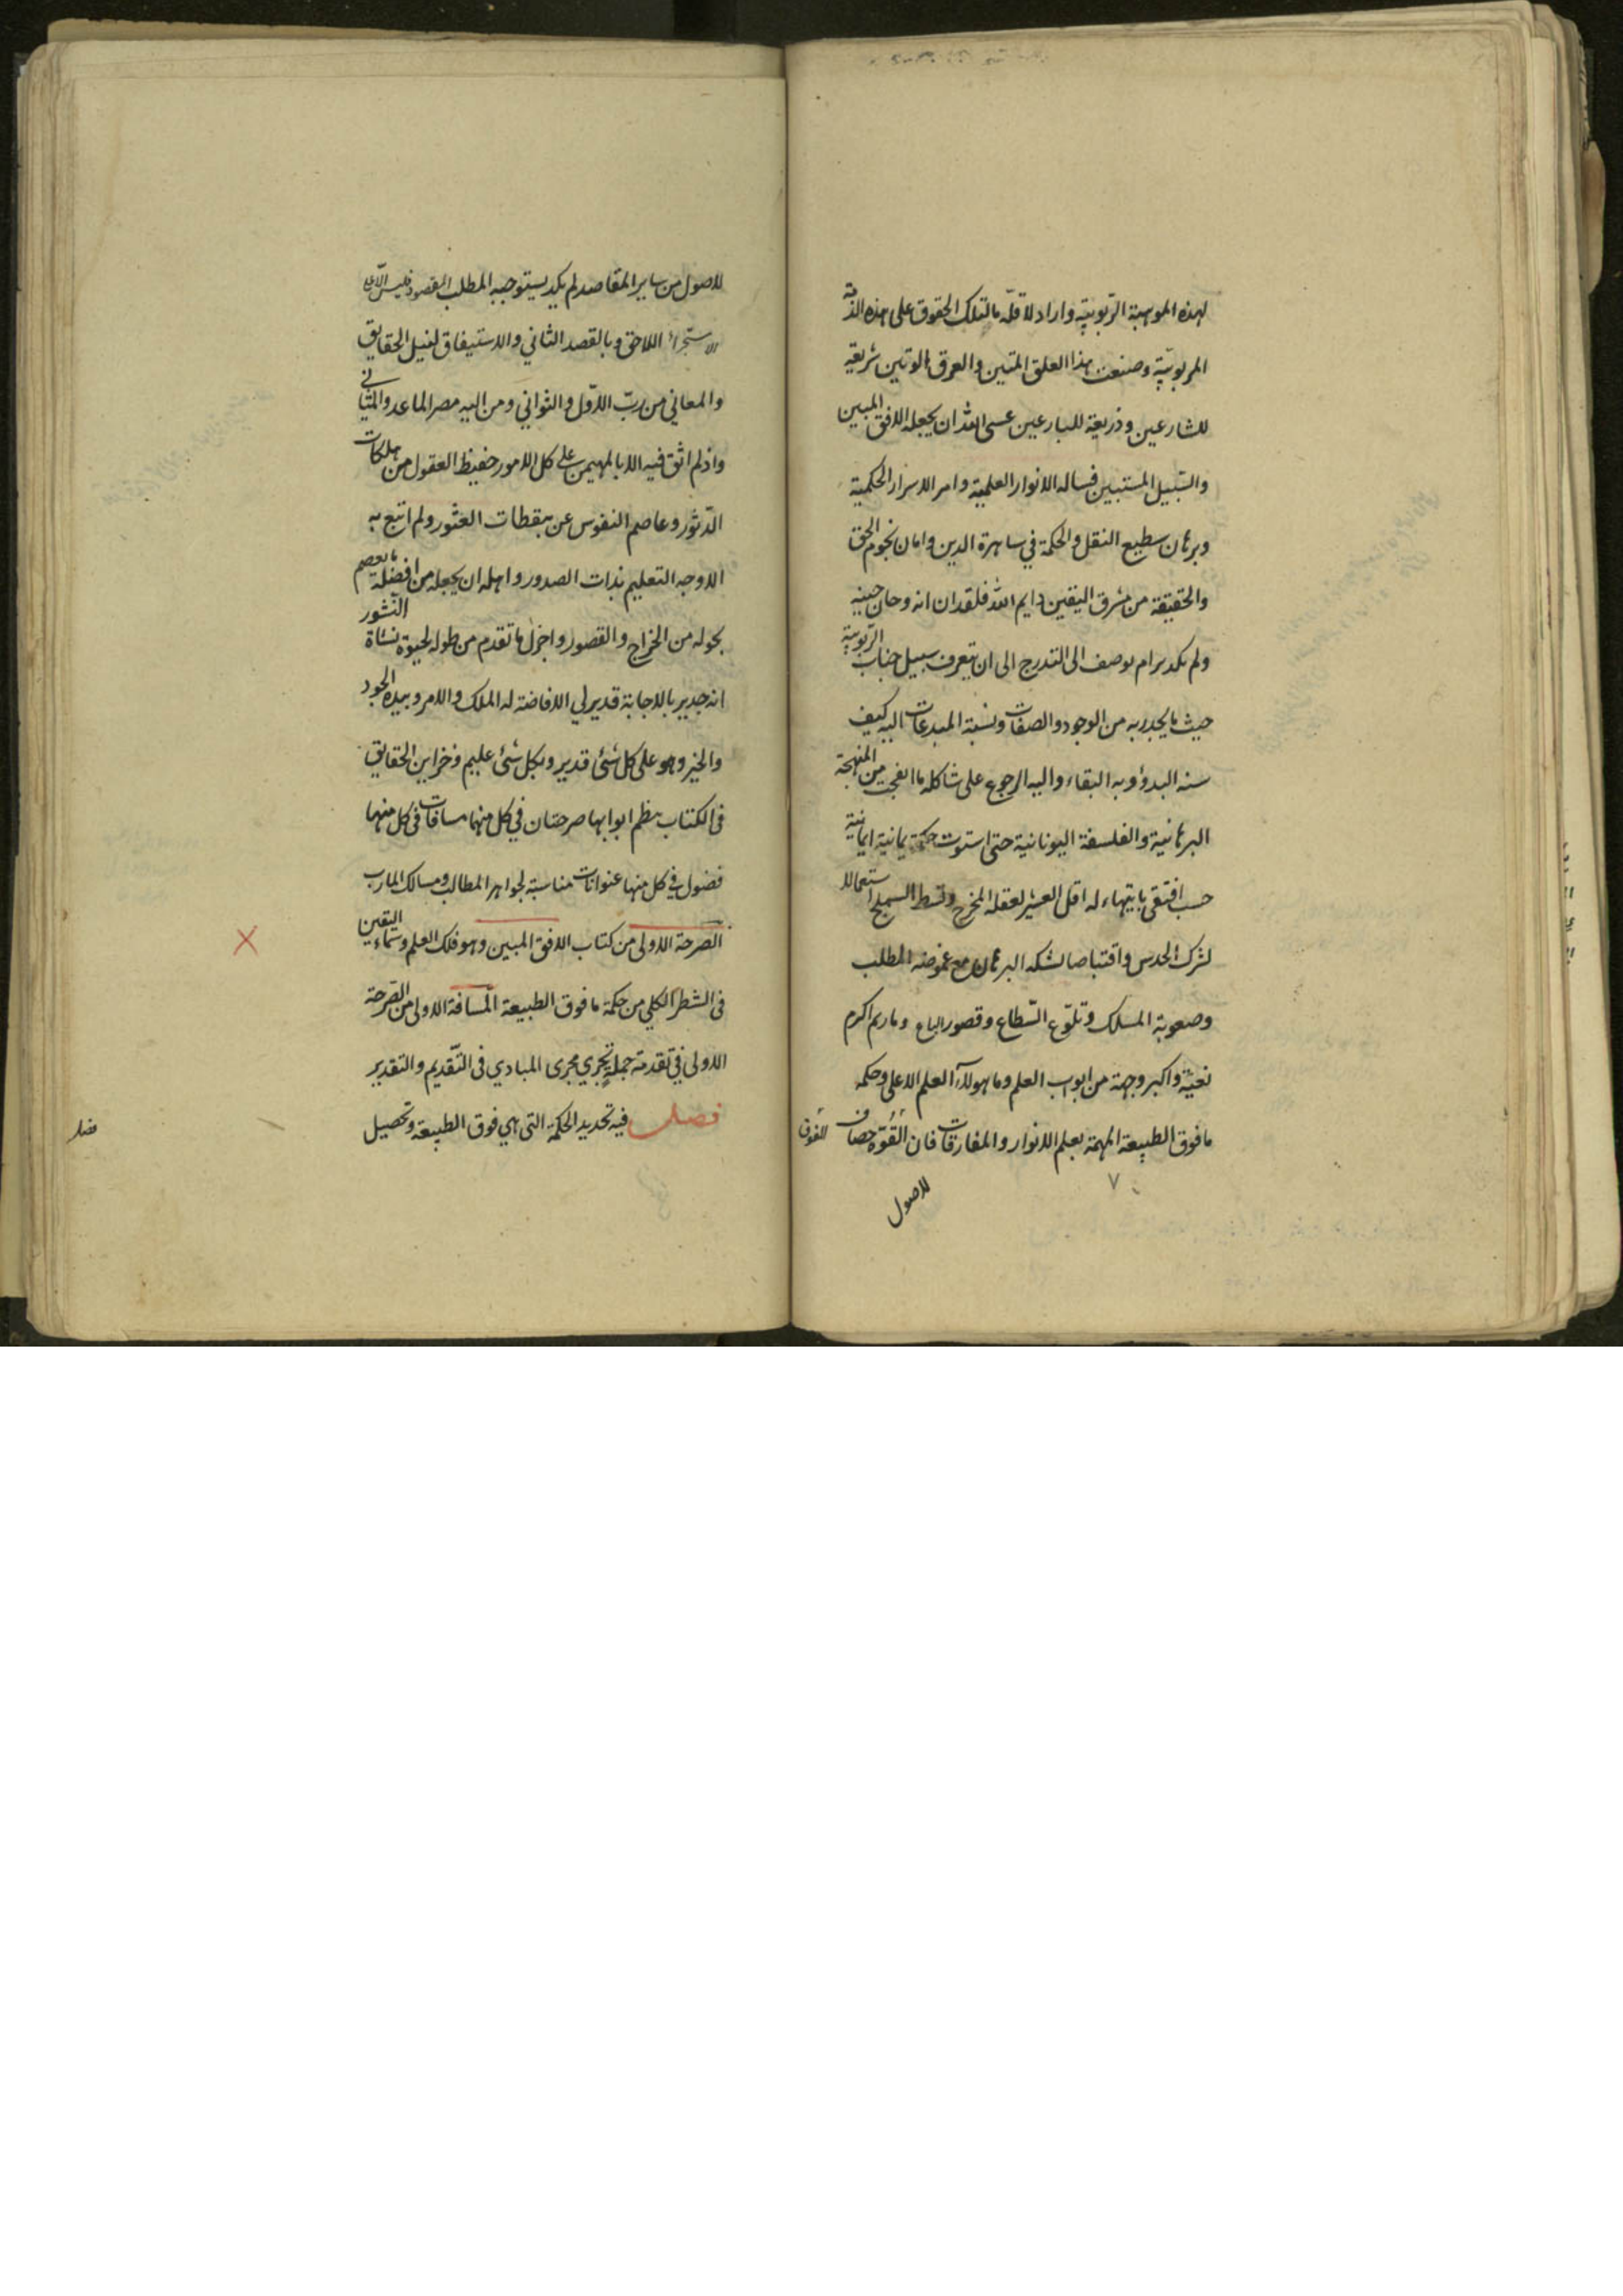 لهذه الموهبة الربوبية واراد لاقله مالتلك الحقوق على هذه الذمة
المربوبية وصنعت هذا العلق المتين والعرق الوتين شريعة
للشارعين وذريعة للبارعين عسى الله ان يجعله الافق المبين
والسبيل المستبين فساله الانوار العلمية وامر الاسرار الحكمية
وبرهان سطيع النقل والحكمة في ساهرة الدين وامان نجوم الحق
والحقيقة من مشرق اليقين وايم الله فلقد ان انه وحان حينه
ولم يكد يرام بوصف الى التدرج الى ان يتعرف سبيل جناب الربوبية
حيث ما يجدر به من الوجود والصفات ونسبة المبدعات اليه كيف
منه البدؤ وبه البقاء واليه الرجوع على شاكله ما من المنهجة
البرهانية والفلسفة اليونانية حتى استوت حكمة يمانية ايمانية
حسب له اقل العشير لعقله المخرج وقسط السملج استعمالا
لشرك الحدس واقتباصا لشكه البرهان مع غموضه المطلب
وصعوبة المسلك وتلوع السطاع وقصور الباع وما ريم اكرم
نعية واكبر وجهة من ابواب العلم وما هو لآء العلم الاعلى وحكمه
ما فوق الطبيعة المهمة بعلم الانوار والمفارقات فان القوة
٧
للاصول
للاصول من ساير المقاصد لم يكد يستوجبه المطلب المقصود فليس الا على
الاستجراء اللاحق وبالقصد الثاني والاستيفاق لنيل الحقايق
والمعاني من رب الاول والثواني ومن اليه مصر الماعد والمثاني
واذ لم اثق فيه الا بالمهيمن على كل الامور حفيظ العقول من هلكات
الدثور وعاصم النفوس عن بقطات العثور ولم اتبع به
الا وجه التعليم بذات الصدور واهله ان يجعله من افضلة ما يعصم
بحوله من الخراج والقصور واجزل ما تقدم من طوله لحيوة نشاة النشور
انه جدير بالاجابة قدير لي الافاضة له الملك والامر وبيده الجود
والخير وهو على كل شئ قدير وبكل شئ عليم وخزاين الحقايق
في الكتاب ينظم ابوابها صرحتان في كل منهما مسافات في كل منهما
فصول في كل منها عنوانات مناسبة لجواهر المطالب ومسالك المارب
الصرحة الاولى من كتاب الافق المبين وهو فلك العلم وسماء اليقين
في الشطر الكلي من حكمة ما فوق الطبيعة المسافة الاولى من الصرحة
الاولى في تقدمة جملة تجري مجرى المبادي في التقديم والتقدير
فصل فيه تحديد الحكمة التي هي فوق الطبيعة وتحصيل